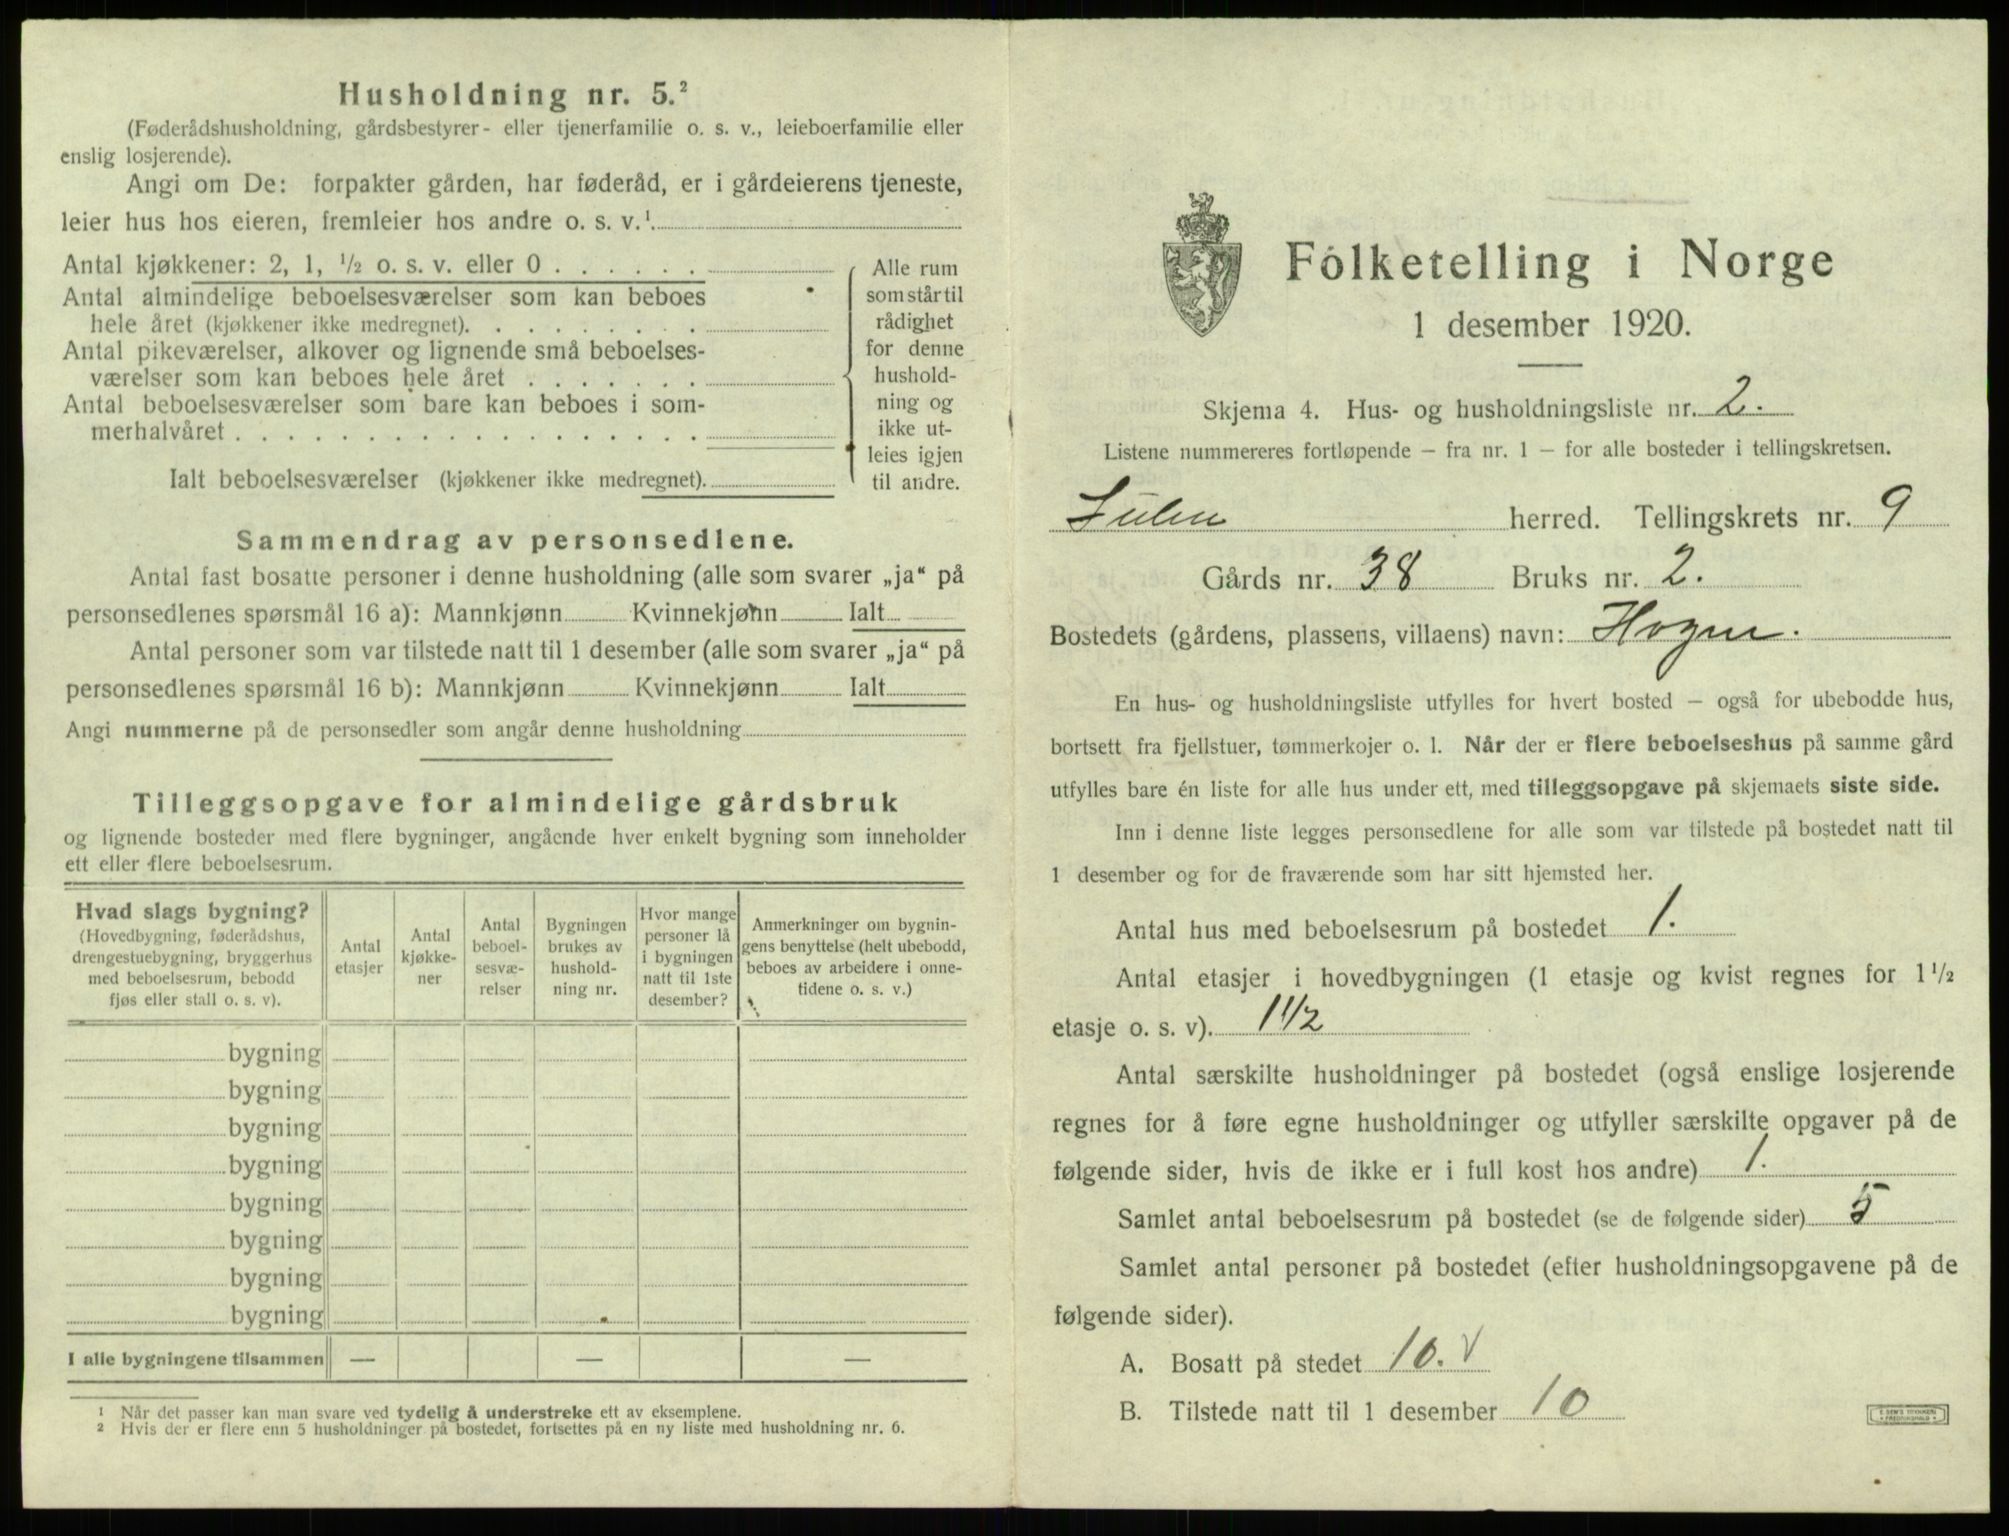 Husholdning nr. 5.²
(Føderådshusholdning, gårdsbestyrer- eller tjenerfamilie o. s. v., leieboerfamilie eller
enslig losjerende).
Angi om De: forpakter gården, har føderåd, er i gårdeierens tjeneste,
leier hus hos eieren, fremleier hos andre o. s. v.¹
Antal kjøkkener: 2, 1, ½ o. s. v. eller 0 . . . . . .
Antal almindelige beboelsesværelser som kan beboes
hele året (kjøkkener ikke medregnet). . . . . . . . .
Antal pikeværelser, alkover og lignende små beboelses-
værelser som kan beboes hele året . . . . . . .
Antal beboelsesværelser som bare kan beboes i som-
merhalvåret . . . . . . . . . . . . . . . . . .
Ialt beboelsesværelser (kjøkkener ikke medregnet).
Alle rum
som står til
rådighet
for denne
hushold-
ning og
ikke ut-
leies igjen
til andre.
Sammendrag av personsedlene.
Antal fast bosatte personer i denne husholdning (alle som svarer „ja“ på
personsedlenes spørsmål 16 a): Mannkjønn Kvinnekjønn Ialt
Antal personer som var tilstede natt til 1 desember (alle som svarer „ja“ på
personsedlenes spørsmål 16 b): Mannkjønn Kvinnekjønn Ialt
Angi nummerne på de personsedler som angår denne husholdning
Tilleggsopgave for almindelige gårdsbruk
og lignende bosteder med flere bygninger, angående hver enkelt bygning som inneholder
ett eller flere beboelsesrum.
Hvad slags bygning?
(Hovedbygning, føderådshus,
drengestuebygning, bryggerhus
med beboelsesrum, bebodd
fjøs eller stall o. s. v).
Antal
etasjer
Antal
kjøkke-
ner
Antal
beboel-
sesvæ-
relser
Bygningen
brukes av
hushold-
ning nr.
Hvor mange
personer lå
i bygningen
natt til 1ste
desember?
Anmerkninger om bygnin-
gens benyttelse (helt ubebodd,
beboes av arbeidere i onne-
tidene o. s. v.)
bygning
bygning
bygning
bygning
bygning
bygning
bygning
bygning
I alle bygningene tilsammen — — —
¹ Når det passer kan man svare ved tydelig å understreke ett av eksemplene.
² Hvis der er flere enn 5 husholdninger på bostedet, fortsettes på en ny liste med husholdning nr. 6.
Folketelling i Norge
1 desember 1920.
Skjema 4. Hus- og husholdningsliste nr. 2.
Listene nummereres fortløpende — fra nr. 1 — for alle bosteder i tellingskretsen.
Sulen herred. Tellingskrets nr. 9
Gårds nr. 38 Bruks nr. 2.
Bostedets (gårdens, plassens, villaens) navn: Hogne.
En hus- og husholdningsliste utfylles for hvert bosted — også for ubebodde hus,
bortsett fra fjellstuer, tømmerkojer o. l. Når der er flere beboelseshus på samme gård
utfylles bare én liste for alle hus under ett, med tilleggsopgave på skjemaets siste side.
Inn i denne liste legges personsedlene for alle som var tilstede på bostedet natt til
1 desember og for de fraværende som har sitt hjemsted her.
Antal hus med beboelsesrum på bostedet 1.
Antal etasjer i hovedbygningen (1 etasje og kvist regnes for 1½
etasje o. s. v). 1 1/2
Antal særskilte husholdninger på bostedet (også enslige losjerende
regnes for å føre egne husholdninger og utfyller særskilte opgaver på de
følgende sider, hvis de ikke er i full kost hos andre) 1.
Samlet antal beboelsesrum på bostedet (se de følgende sider) 5
Samlet antal personer på bostedet (efter husholdningsopgavene på de
følgende sider).
A. Bosatt på stedet 10. V
B. Tilstede natt til 1 desember 10